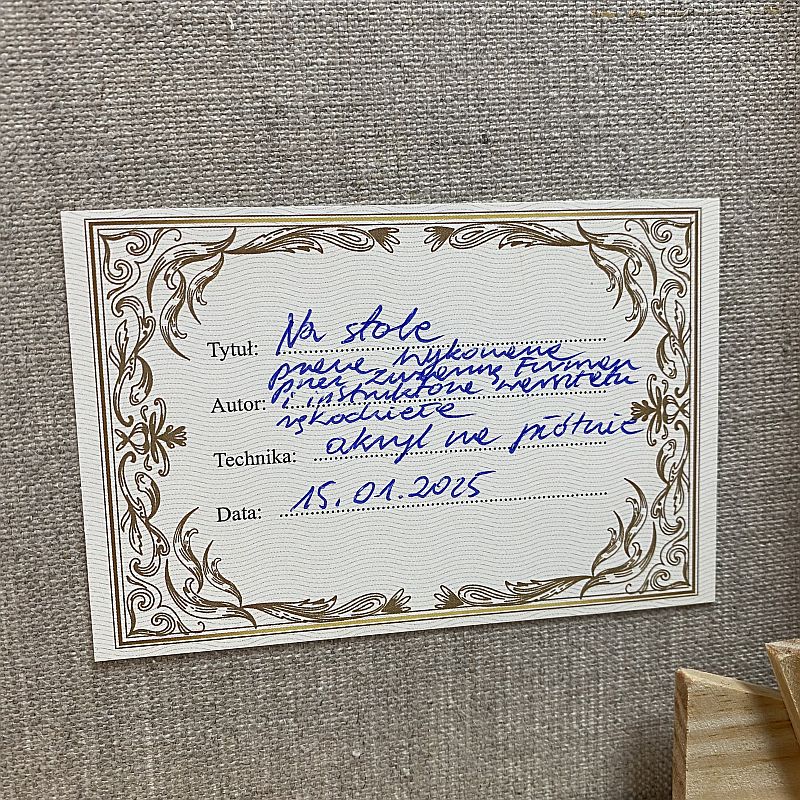 Tytuł: Na stole
praca wykonana
przez Zuzannę Furman
Autor: i instruktora warsztatu
rękodzieła
Technika: akryl na płótnie
Data: 15.01.2025